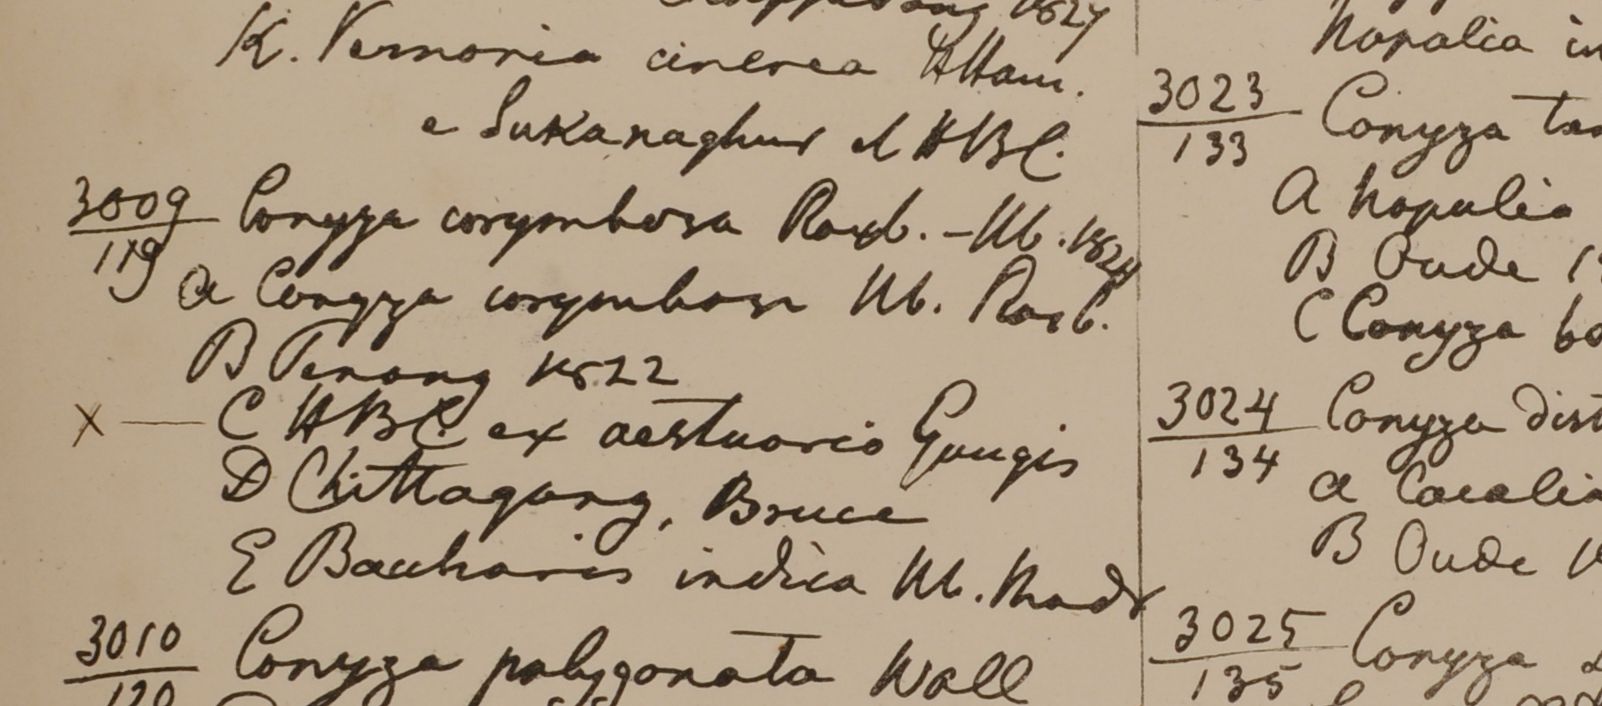 1827
K. Vernonia cinerea HHam.
e Sukanaghur d HBC.
3009 Conyza corymbosa Roxb. – Hb. 1824
119
a Conyza corymbosa Hb. Roxb.
B Penang 1822
X — C HBC ex aestuario Gangis
D Chittagong, Bruce
E Baccharis indica Hb. Madr
3010 Conyza polygonata Wall
120
Napalia in
3023 Conyza
133
A Napalia
B Oude
C Conyza
3024 Conyza dist
134
a Cacalia
B Oude
3025 Conyza
135